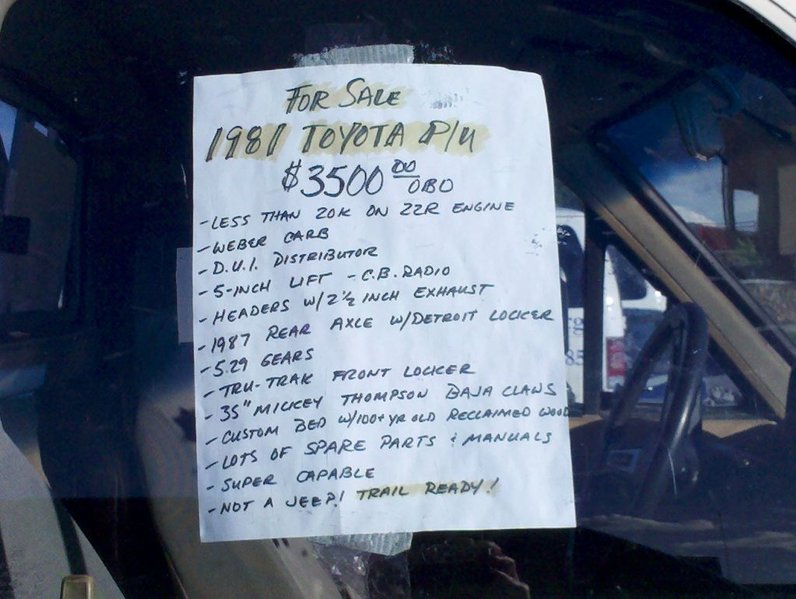 FOR SALE
1981 TOYOTA P/U
$3500 00 OBO
- LESS THAN 20K ON 22R ENGINE
- WEBER CARB
- D.U.I. DISTRIBUTOR
- 5-INCH LIFT - C.B. RADIO
- HEADERS W/ 2 1/2 INCH EXHAUST
- 1987 REAR AXLE W/DETROIT LOCKER
- 5.29 GEARS
- TRU-TRAK FRONT LOCKER
- 35" MICKEY THOMPSON BAJA CLAWS
- CUSTOM BED W/100+ YR OLD RECLAIMED WOOD
- LOTS OF SPARE PARTS & MANUALS
- SUPER CAPABLE
- NOT A JEEP! TRAIL READY!